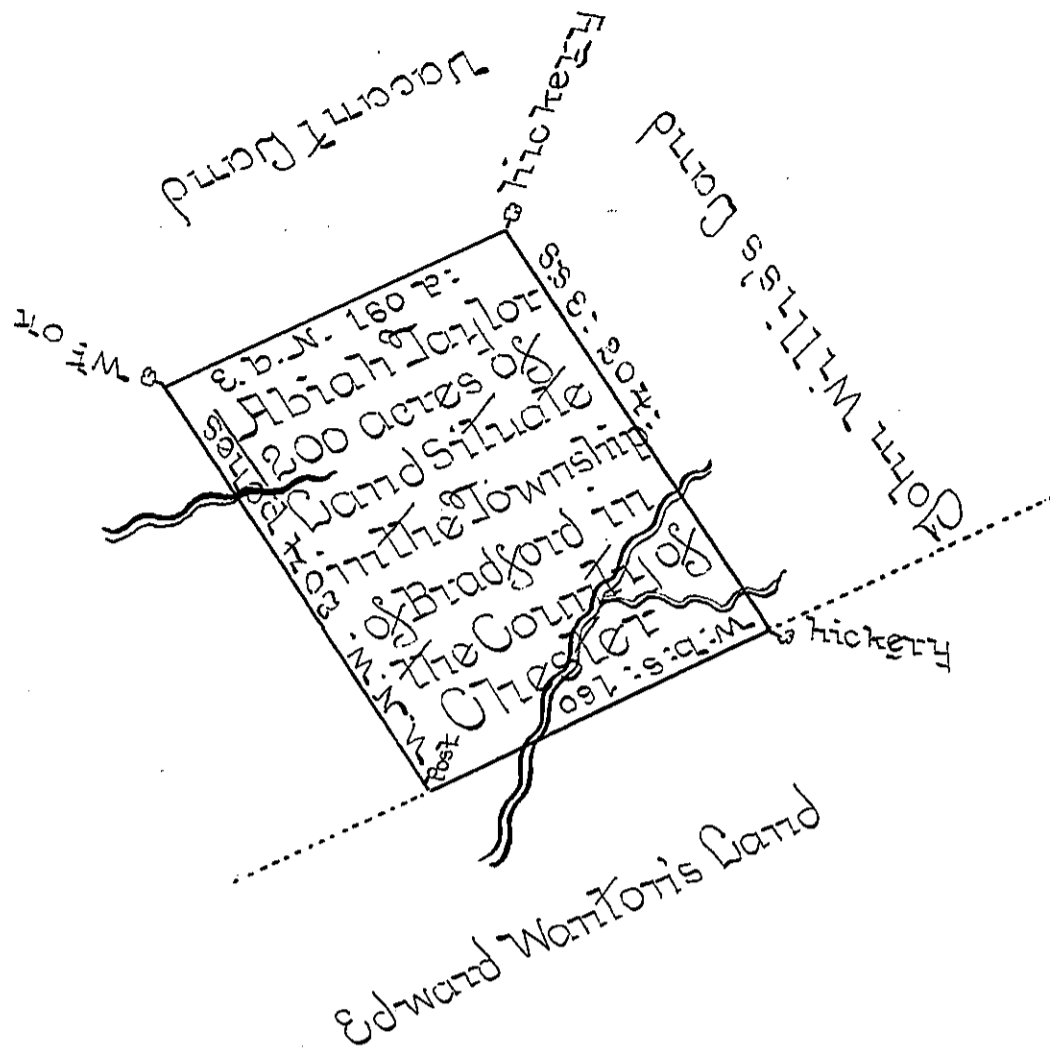 Vacant Land
hickery
John Willis's Land
Wt or
E. b. N. 160 p:
S.S.E: 204:
Abiah Taylor
200 acres of
Land situate
in the Township
of Bradford in
the County of
Chester
N.N.W. 204 perches
W: b: S: 160
Post
hickery
Edward Wanton's Land